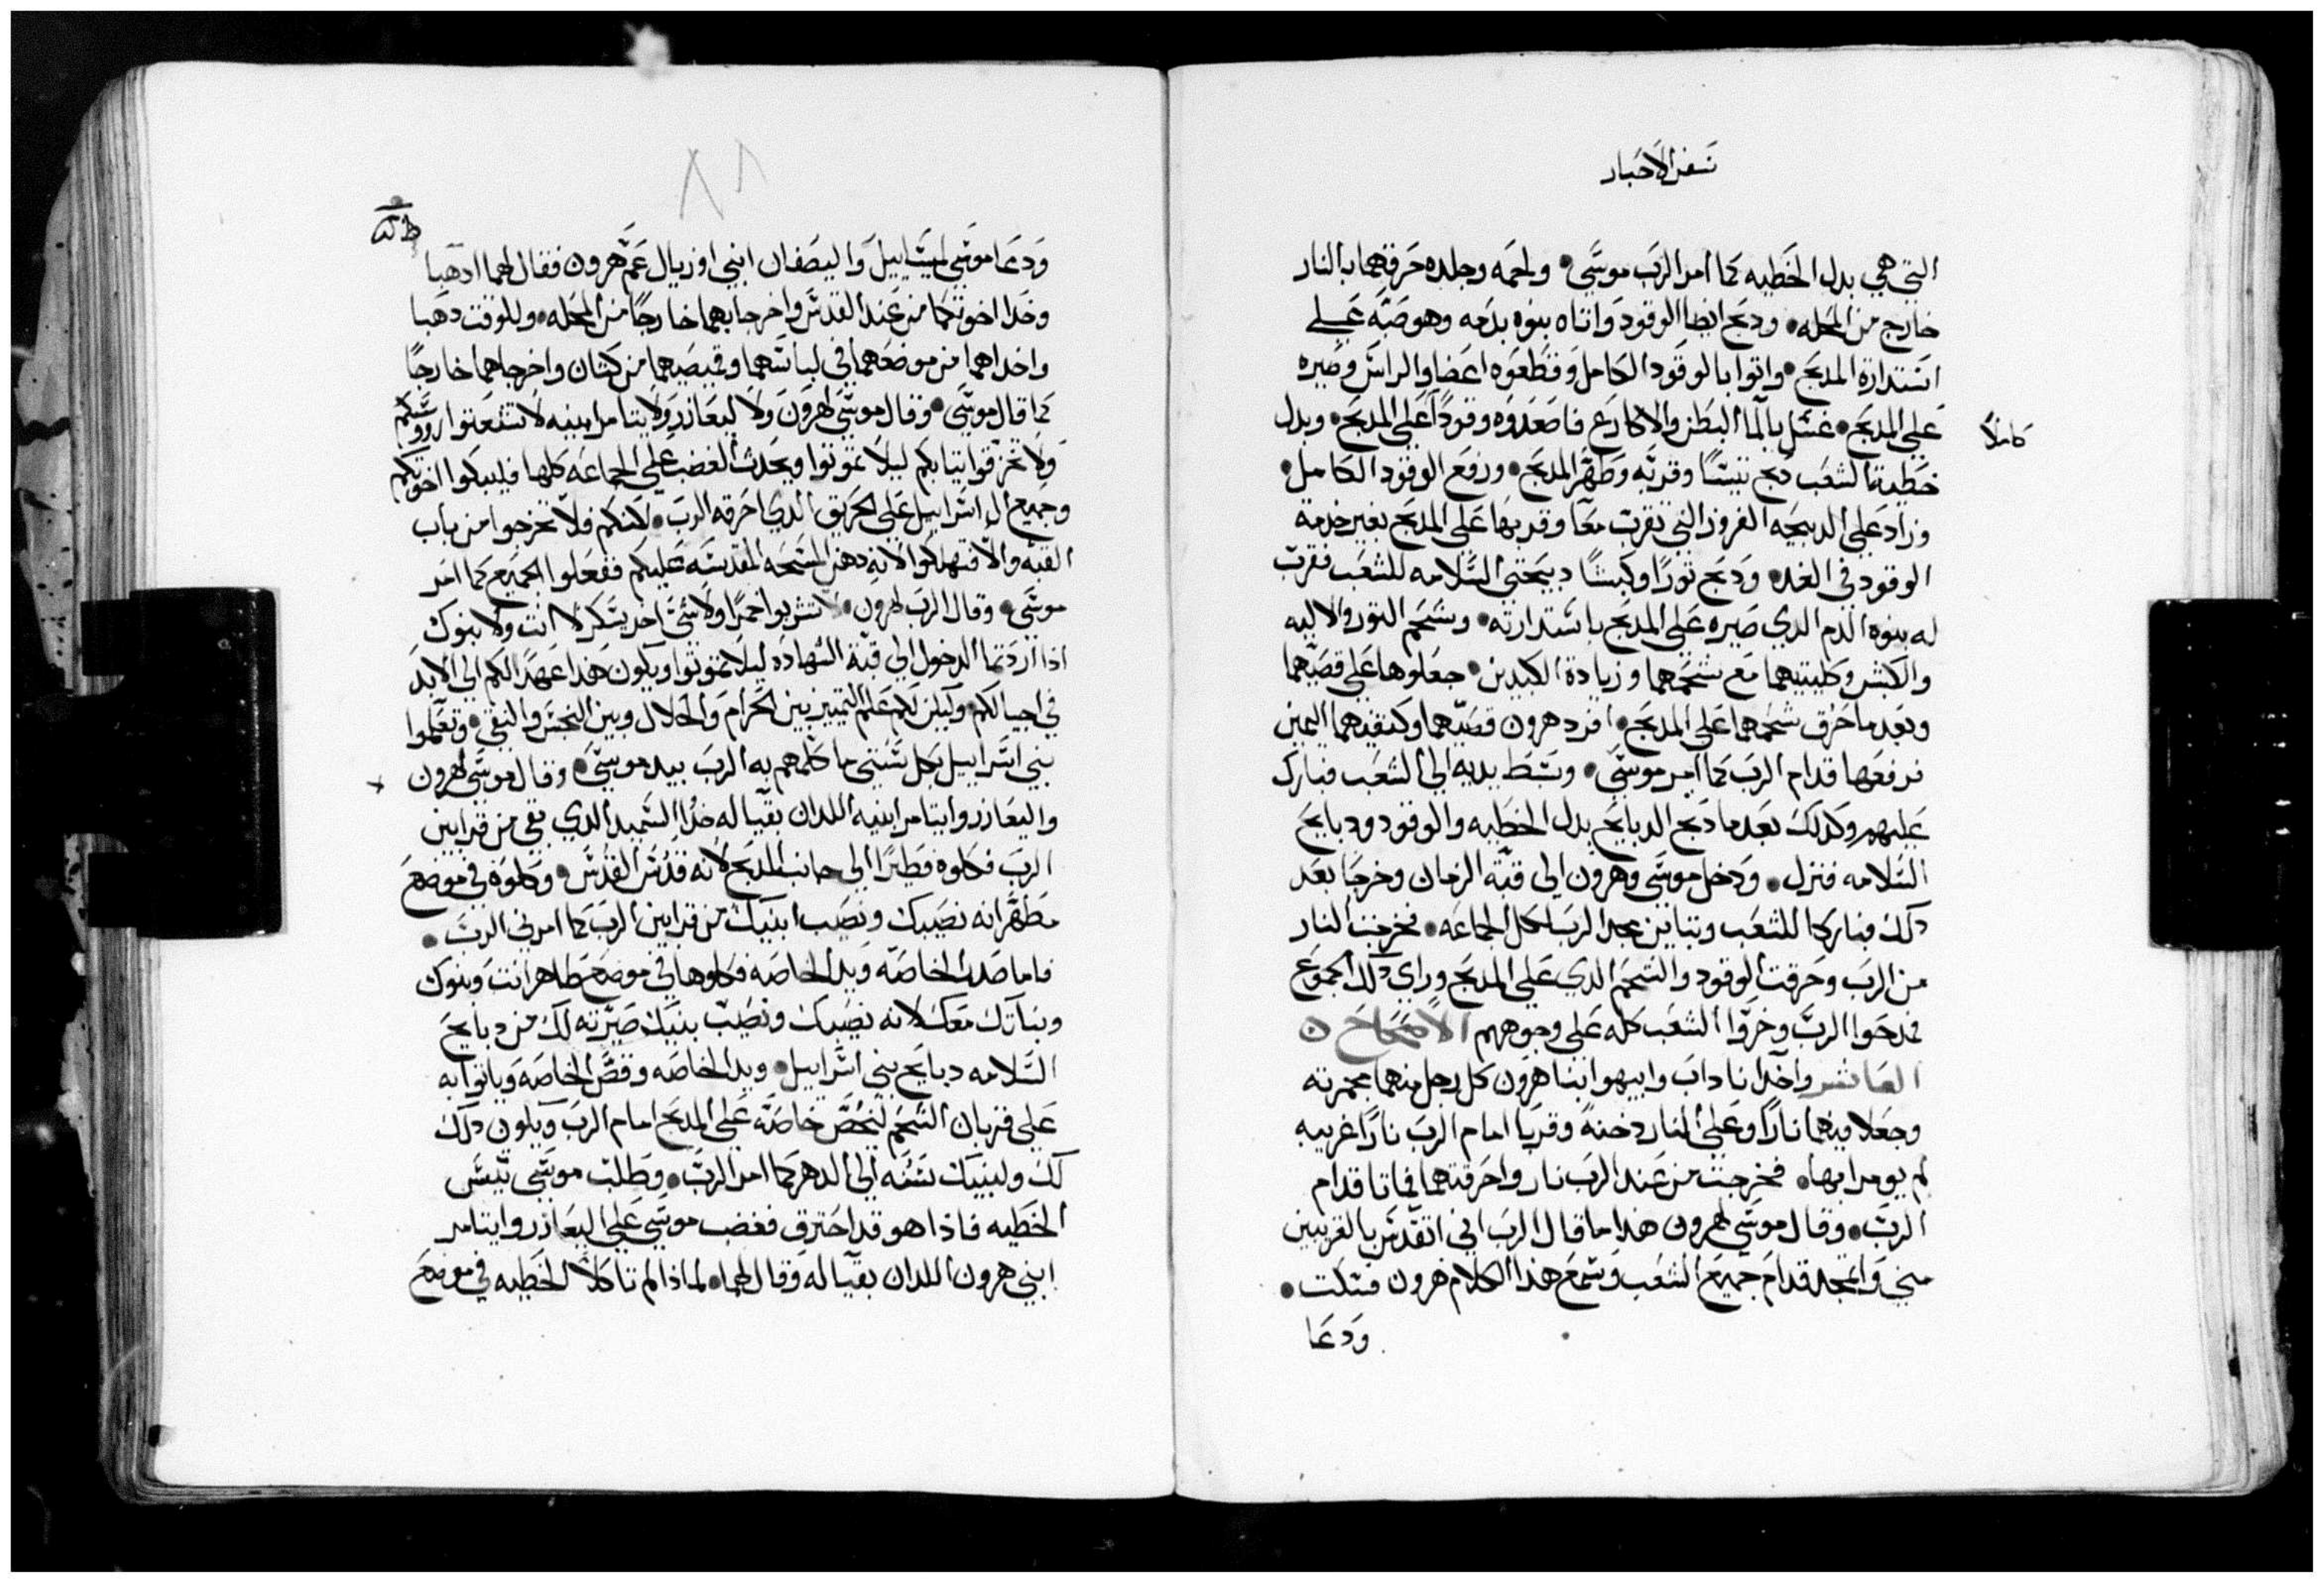 سفر الاحبار
التي هي بدل الخطيه كما امر الرب موسى • ولحمه وجلده حرقهما بالنار
خارج من المحله • ودبح ايضا الوقود واتاه بنوه بدمه وهو صبه علي
استدارة المدبح • واتوا بالوقود الكامل وقطعوه اعضا والراس وصيره
علي المدبح • غسل بالما البطن والاكارع فاصعدوه وقودًا علي المدبح • وبدل
كاملاً
خطية الشعب دبح تيسًا وقربه وطهر المدبح • ورفع الوقود الكامل •
وزاد علي الدبيحه الفروز التي تقرب معًا وقربها علي المدبح بغير خدمة
الوقود في الغد • ودبح ثورًا وكبشًا دبيحتي السلامه للشعب فقرب
له بنوه الدم الدي صيره علي المدبح باستدارته • وشحم التور والاليه
والكبش وكليتيهما مع شحمهما وزيادة الكبدين • جعلوها علي قصيهما
وبعد ما حرق شحمهما علي المدبح • افرد هرون قصيهما وكتفيهما اليمين
فرفعها قدام الرب كما امر موسى • وبسط يديه الي الشعب فبارك
عليهم وكدلك بعد ما دبح الدبايح بدل الخطيه والوقود ودبايح
السلامه فنزل • ودخل موسى وهرون الي قبة الزمان وخرجا بعد
دلك فباركا للشعب وتباين مجد الرب لكل الجماعه • فخرجت النار
من الرب وحرقت الوقود والشحم الدي علي المدبح وراي دلك الجموع
فمدحوا الرب وخروا الشعب كله علي وجوههم الاصحاح
العاشر واخدا ناداب وابيهو ابنا هرون كل رجل منهما مجمرته
وجعلا فيهما نارًا وعلي النار دخنة وقربا امام الرب نارًا غريبه
لم يومرا بها • فخرجت من عند الرب نار واحرقتهما فماتا قدام
الرب • وقال موسى لهرون هدا ما قال الرب اني اتقدس بالقريبين
مني واتمجد قدام جميع الشعب وسمع هدا الكلام هرون فسكت •
ودعا
٨٨
ودعا موسى ليشاييل واليصفان ابني اوزيال عم هرون فقال لهما ادهبا
وخدا اخوتكما من عند القدس واخرجا بهما خارجًا من المحله • وللوقت دهبا
واخداهما من موضعهما في لباسهما وقميصهما من كتان واخرجاهما خارجًا
كما قال موسى • وقال موسى لهرون ولاليعازر ولايتامر ابنيه لا تشعتوا روسكم
ولا تمزقوا تيابكم ليلا تموتوا ويحدث الغضب علي الجماعه كلها فليبكوا اخوتكم
وجميع ال اسراييل علي الحريق الدي احرقه الرب • لكنكم فلا تخرجوا من باب
القبه والا فتهلكوا لانه دهن المسحه المقدسه عليكم ففعلوا الجميع كما امر
موسى • وقال الرب لهرون • لا تشربوا خمرًا ولا شي اخر يسكر لا انت ولا بنوك
ادا اردتما الدخول الي قبة الشهاده ليلا تموتوا ويكون هدا عهدًا لكم الي الابد
في اجيالكم • وليكن لكم علم التمييز بين الحرام والحلال وبين النجس والنقي • وتعلموا
بني اسراييل بكل شي ما كلمهم به الرب بيد موسى • وقال موسى لهرون
واليعازر وايتامر ابنيه اللدان بقيا له خدا السميد الدي بقي من قرابين
الرب فكلوه فطيرًا الي جانب المدبح لانه قدس القدس • وكلوه في موضع
مطهر انه نصيبك ونصيب ابنيك من قرابين الرب كما امرني الرب •
فاما صدر الخاصه ويد الخاصه فكلوها في موضع طاهر انت وبنوك
وبناتك معك لانه نصيبك ونصيب بنيك صيرته لك من دبايح
السلامه دبايح بني اسراييل • ويد الخاصه وقص الخاصه وياتوا به
علي قربان الشحم لتخص خاصة علي المدبح امام الرب ويكون دلك
لك ولبنيك سنه الي الدهر كما امر الرب • وطلب موسى تيس
الخطيه فاذا هو قد احترق فغضب موسى علي اليعازر وايتامر
ابني هرون اللدان بقيا له وقال لهما • لماذا لم تاكلا الخطيه في موضع